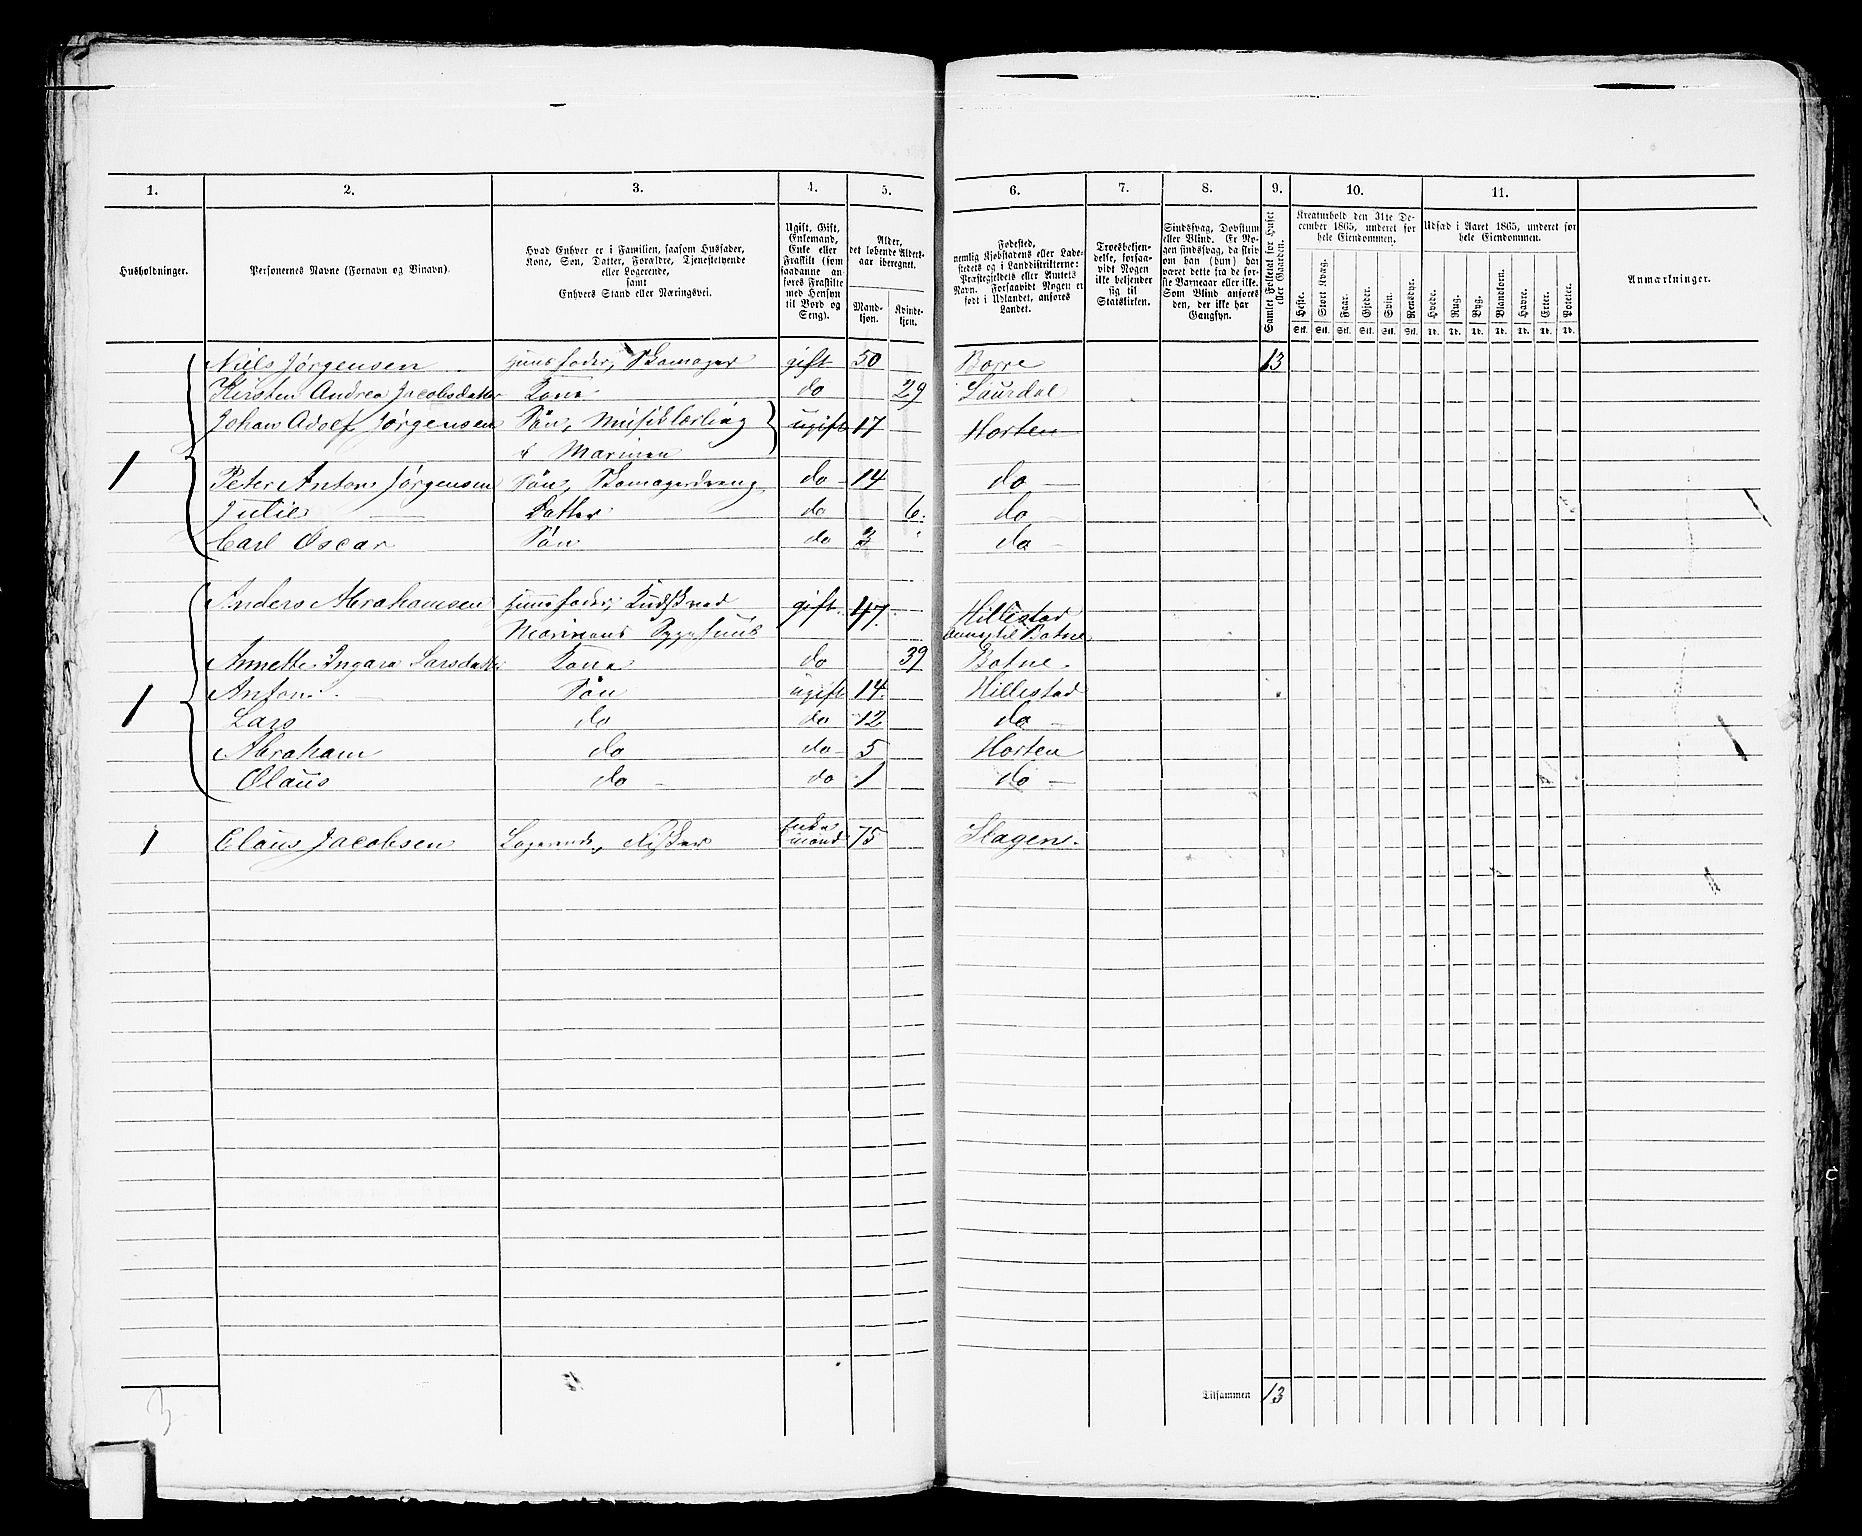 1. 2. 3. 4. 5. 6. 7. 8. 9. 10. 11.
Husholdninger.
Personernes Navne (Fornavn og Binavn).
Hvad Enhver er i Familien, saasom Husfader,
Kone, Søn, Datter, Forældre, Tjenestetyende
eller Logerende,
samt
Enhvers Stand eller Næringsvei.
Ugift, Gift,
Enkemand,
Enke eller
Fraskilt (som
saadanne an-
føres Fraskilte
med Hensyn
til Bord og
Seng).
Alder,
det løbende Alders-
aar iberegnet.
Mand-
kjøn.
Kvinde-
kjøn.
Fødested,
nemlig Kjøbstadens eller Lade-
stedets og i Landdistrikterne:
Præstegjeldets eller Amtets
Navn. Forsaavidt Nogen er
født i Udlandet, anføres
Landet.
Troesbekjen-
delse, forsaa-
vidt Nogen
ikke bekjender
sig til
Statskirken.
Sindssvag, Døvstum
eller Blind. Er No-
gen sindssvag, da skri-
ves om han (hun) har
været dette fra de før-
ste Barneaar eller ikke.
Som Blind anføres
den, der ikke har
Gangsyn.
Samlet Folketal for Huset
eller Gaarden.
Kreaturhold den 31te De-
cember 1865, underet for
hele Eiendommen.
Heste. Stort Kvæg. Faar. Gjeder. Svin. Rensdyr.
Stk. Stk. Stk. Stk. Stk. Stk.
Udsæd i Aaret 1865, underet for
hele Eiendommen.
Hvede. Rug. Byg. Blandkorn. Havre. Erter. Poteter.
Td. Td. Td. Td. Td. Td. Td.
Anmærkninger.
Niels Jørgensen Huusfader, Skomager gift 50 Borre 13
Kirsten Andrea Jacobsdatter Kone do 29 Laurdal
Johan Adolf Jørgensen Søn, Musiklærling ugift 17 Horten
v Marinen
1 Peter Anton Jørgensen Søn, Skomagerdreng do 14 do
Julie Datter do 6 do
Carl Oscar Søn do 3 do
Anders Abrahamsen Huusfader, Kudsk ved gift 47 Hillestad
Marinens Sygehuus Botne
Annette Ingara Larsdatter Kone do 39 Botne
1 Anton Søn ugift 14 Hillestad
Lars do do 12 do
Abraham do do 5 Horten
Olaus do do 1 do
1 Claus Jacobsen Logerende, Fisker Enkemand 75 Slagen
Tilsammen 13
3